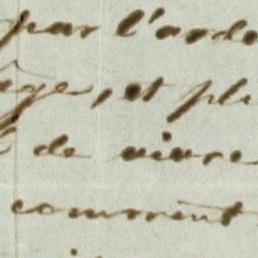 par l'arde
age, et plu
de vivre
comment